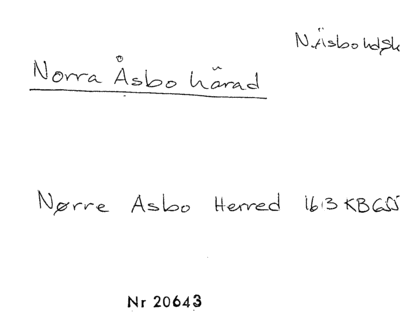 N.Åsbo hdsk
Norra Åsbo härad
Nørre Asbo Herred 1613 KB GSS
Nr 20643